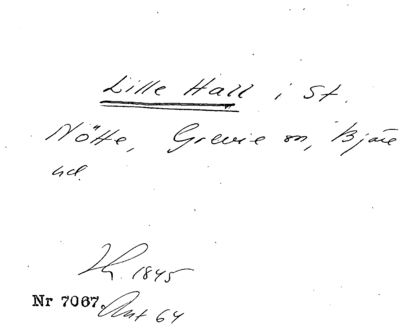 Lille Hall i St.
Nötte, Grevie sn, Bjäre
hd.
1845
Nr 7067. Ant 64